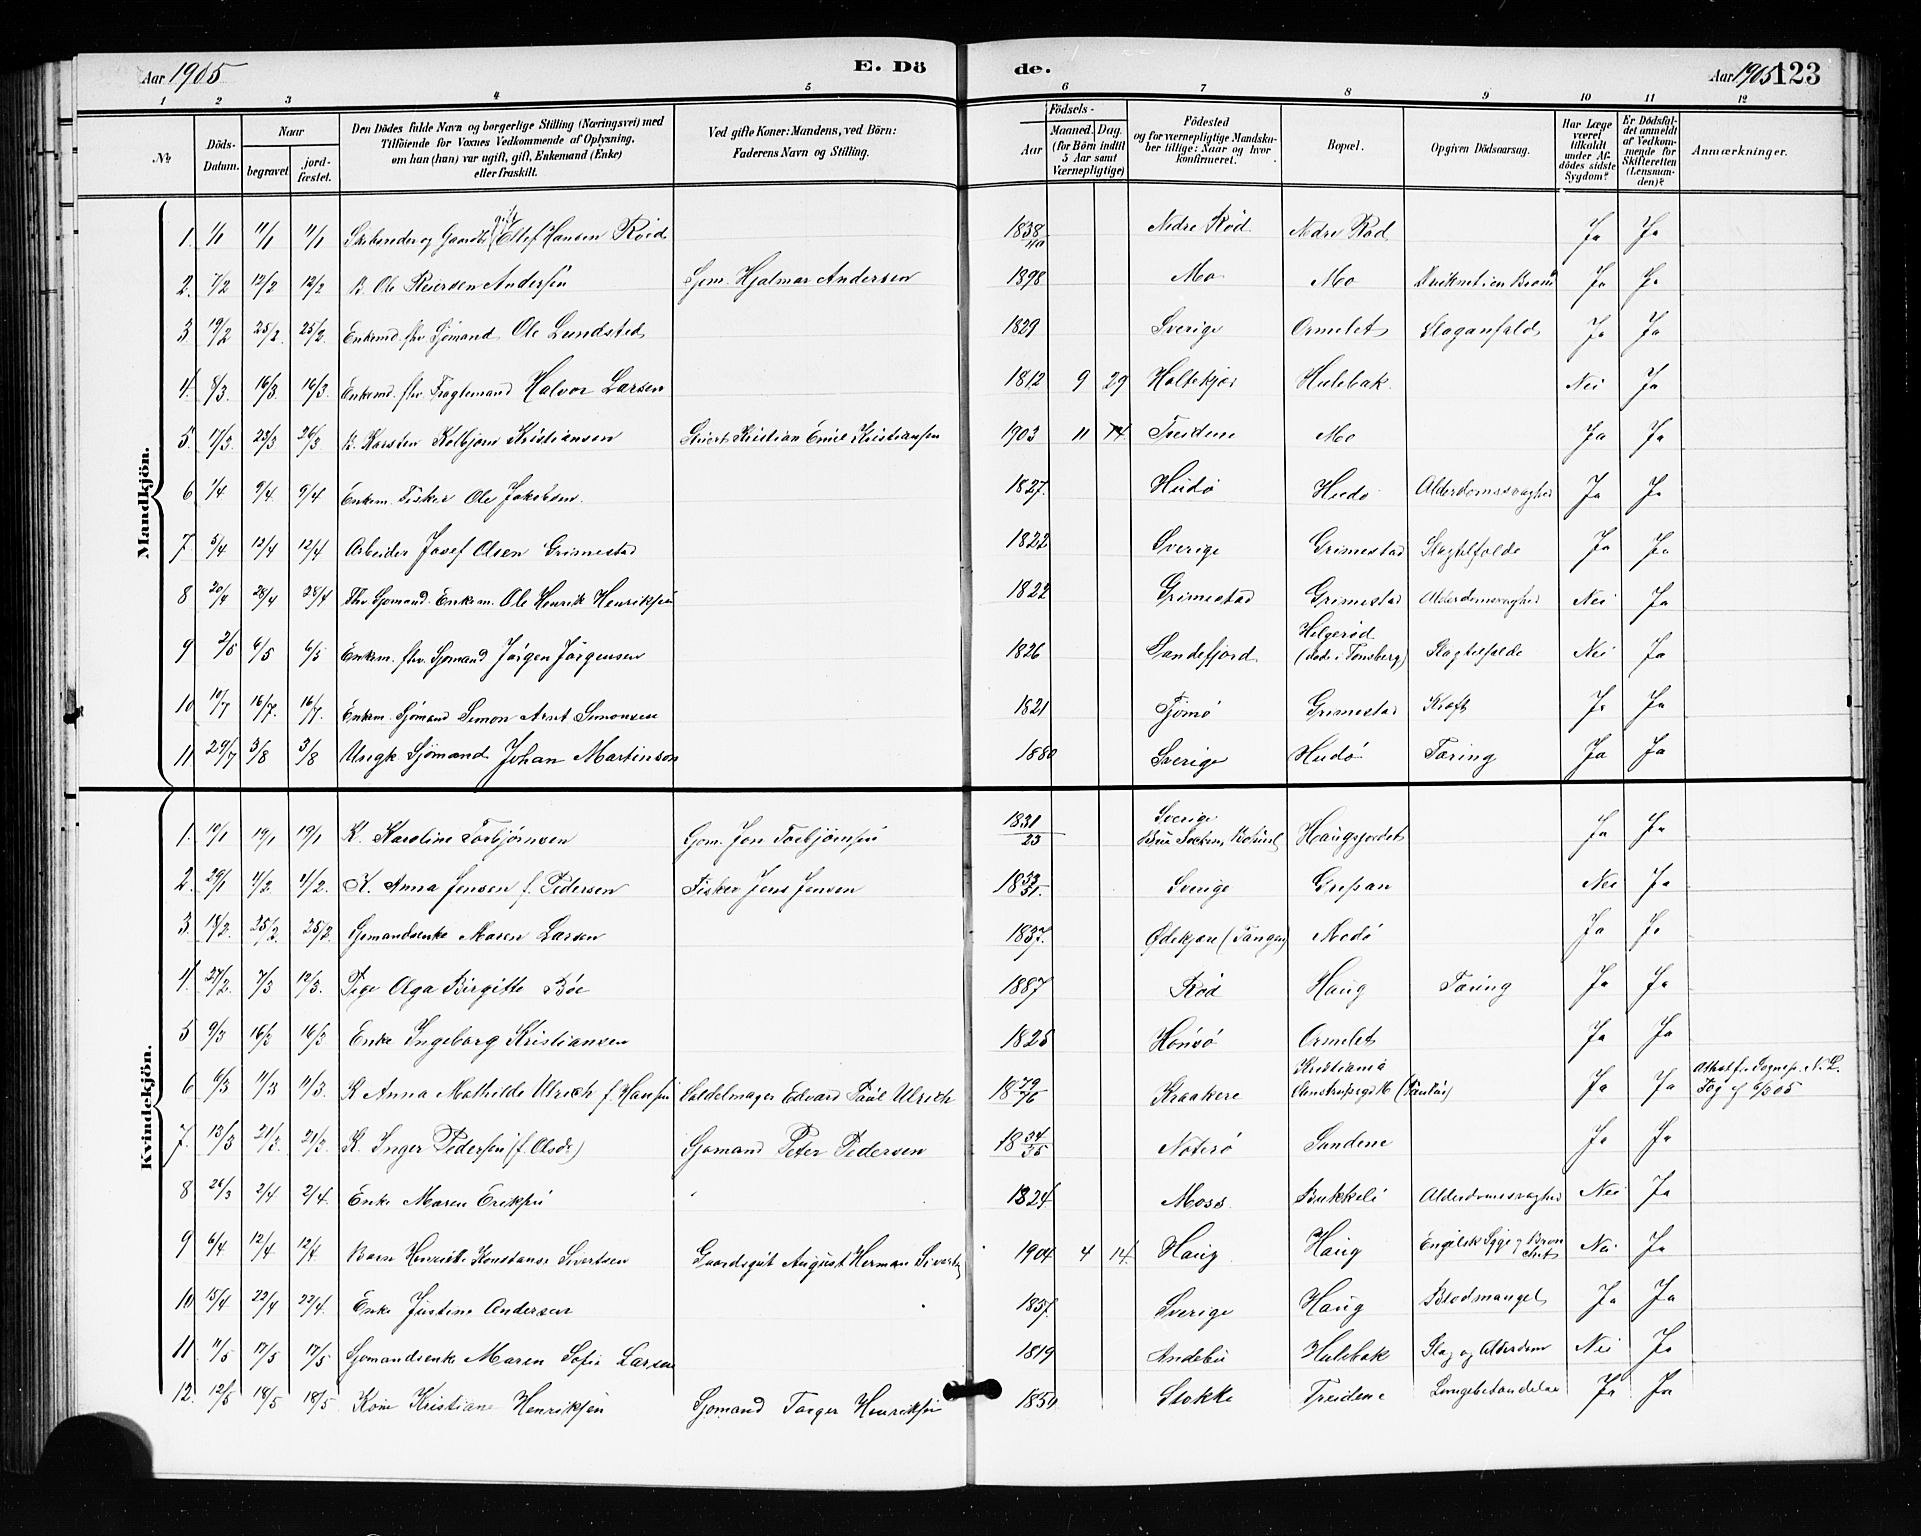 Aar 1905
E. Dö
de.
Aar 1905
123
1 2 3 4 5 6 7 8 9 10 11 12
№
Döds-Datum.
Naar
begravet
jord-fæstet.
Den Dödes fulde Navn og borgerlige Stilling (Næringsvei) med
Tilföiende for Voxnes Vedkommende af Oplysning,
om han (hun) var ugift, gift, Enkemand (Enke)
eller fraskilt.
Ved gifte Koner: Mandens, ved Börn:
Faderens Navn og Stilling.
Födsels-
Aar
Maaned. Dag.
(for Börn indtil
5 Aar samt
Værnepligtige)
Födested
og for værnepligtige Mandska-
ber tillige: Naar og hvor
konfirmeret.
Bopæl.
Opgiven Dödsaarsag.
Har Læge
været
tilkaldt
under Af-
dödes sidste
Sygdom?
Er Dödsfal-
det anmeldt
af Vedkom-
mende for
Skifteretten
(Lensman-
den)?
Anmærkninger.
Mandkjön.
1. 1/1 11/1 11/1 Skibsreder og Gaardbr. gift Ellef Hansen Röid 1838 Nedre Röd Nedre Röd Ja Ja
2. 7/2 12/2 12/2 B. Ole Reiersen Andersen Sjøm. Hjalmar Andersen 1898 Mo Mo Druknet i en Brønd Ja Ja
3 19/2 25/2. 25/2. Enkemd. fhv. Sjømand Ole Lundsted 1829 Sverige Ormelet Slaganfald Ja Ja
4. 8/3. 16/3. 16/3. Enkemd. fhv. Fragtemand Halvor Larsen 1812 9 29 Holtekjær Hulebak. Nei Ja
5 17/3. 23/3 26/3 B. Karsten Kolbjørn Kristiansen Kristian Emil Kristiansen 1903 11 14 Treidene Mo Ja Ja
6 1/4 9/4. 9/4 Enkem. Fisker Ole Jakobsen. 1827. Hudø Hudø Alderdomssvaghed Ja Ja
7 5/4 12/4 12/4 Arbeider Josef Olsen Grimestad 1822 Sverige Grimestad Slagtilfælde Ja Ja
8 20/4 28/4 28/4 Fhv. Sjømand. Enkem. Ole Henrik Henriksen 1822 Grimestad Grimestad Alderdomsvaghed Nei Ja
9 2/5 6/5 6/5 Enkem. fhv. Sjømand Jørgen Jørgensen 1826 Sandefjord Helgerød (døde i Tønsberg) Slagtilfælde Nei Ja
10 10/7 16/7. 16/7. Enkem. Sjømand Simon Arnt Simonsen 1821 Tjømø Grimestad Kræft Ja Ja
11 29/7 3/8 3/8 Ungk. Sjømand Johan Martinson 1880 Sverige Hudø Tæring Ja Ja
Kvindekjön.
1. 10/1 19/1 19/1 K. Karoline Torbjørnsen Jon Torbjørnsen 1831/23 Sverige Haugsjordet Ja Ja
2. 29/1 4/2 4/2. K. Anna Jensen f. Pedersen Fisker Jens Jensen 1833/31. Sverige Grepan Nei Ja
3. 18/2. 25/2. 25/2. Sjømandsenke Maren Larsen 1837. Ødekjære (Tangen) Medø Ja Ja
4. 27/2. 7/3 12/3. Pige Olga Birgitte Bøe 1887 Rød Haug Tæring Ja Ja
5 9/3 16/3 16/3 Enke Ingeborg Kristiansen 1825 Hønsø Ormelet Ja Ja
6 6/3 11/3 11/3. K Anna Mathilde Ulrich f. Hansen Edvard Paul Ulrich 1879/76 Kraakere Kristiania Ja Ja
7. 13/3 21/3. 21/3. K Inger Pedersen (f. Olsdr.) Sjømand Peter Pedersen 1834/35 Nøterø Sandene Ja Ja
8 26/3 2/4 2/4. Enke Maren Eriksen 1824 Moss Bukkeli Alderdomssvaghed Nei Ja
9 6/4 12/4 12/4 Barn Henriette Konstanse Sivertsen Gaardsgut August Herman Sivertsen 1904 4 14. Haug Haug Engelsk Syge og Bronchit Nei Ja
10 15/4 22/4 22/4. Enke Justine Andersen 1857. Sverige Haug Blodmangel Ja Ja
11. 11/5 17/5 17/5 Sjømandsenke Maren Sofie Larsen 1819 Andebu Hulebak Slag og Alderdom Nei Ja
12. 12/5 18/5 18/5. Kone Kristiane Henriksen Sjømand Torger Henriksen 1850 Stokke Treidene Lungebetændelse Ja Ja